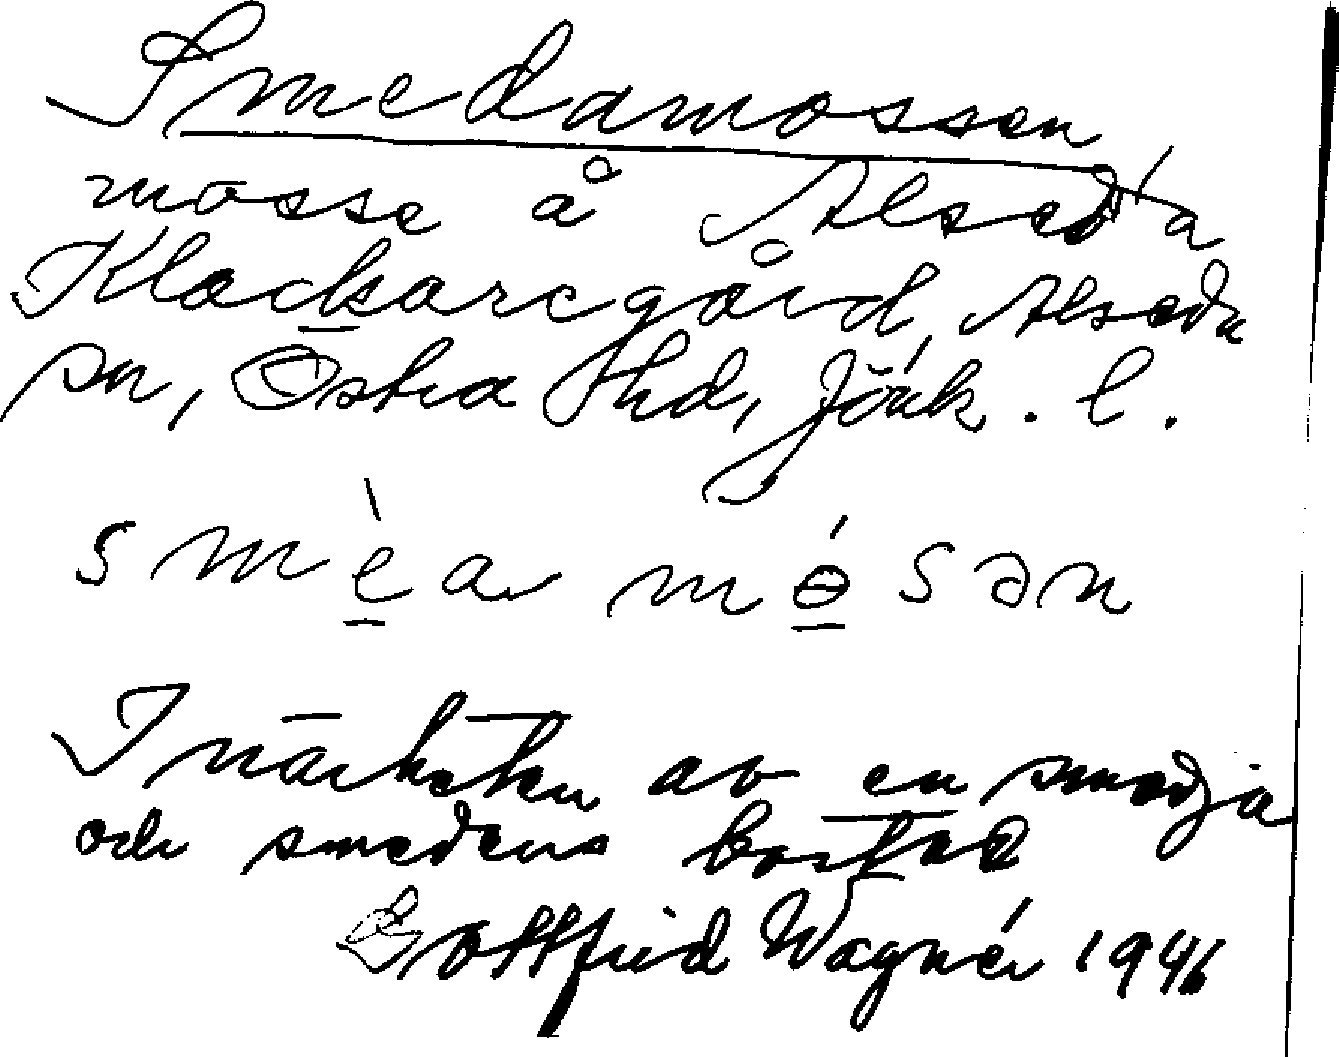 Smedamossen
mosse å Alseda
Klockaregård, Alseda
sn, Östra hd, Jönk. l.
smèa mósən
I närheten av en smedja
och smedens bostad
Gottfrid Wagnér 1946